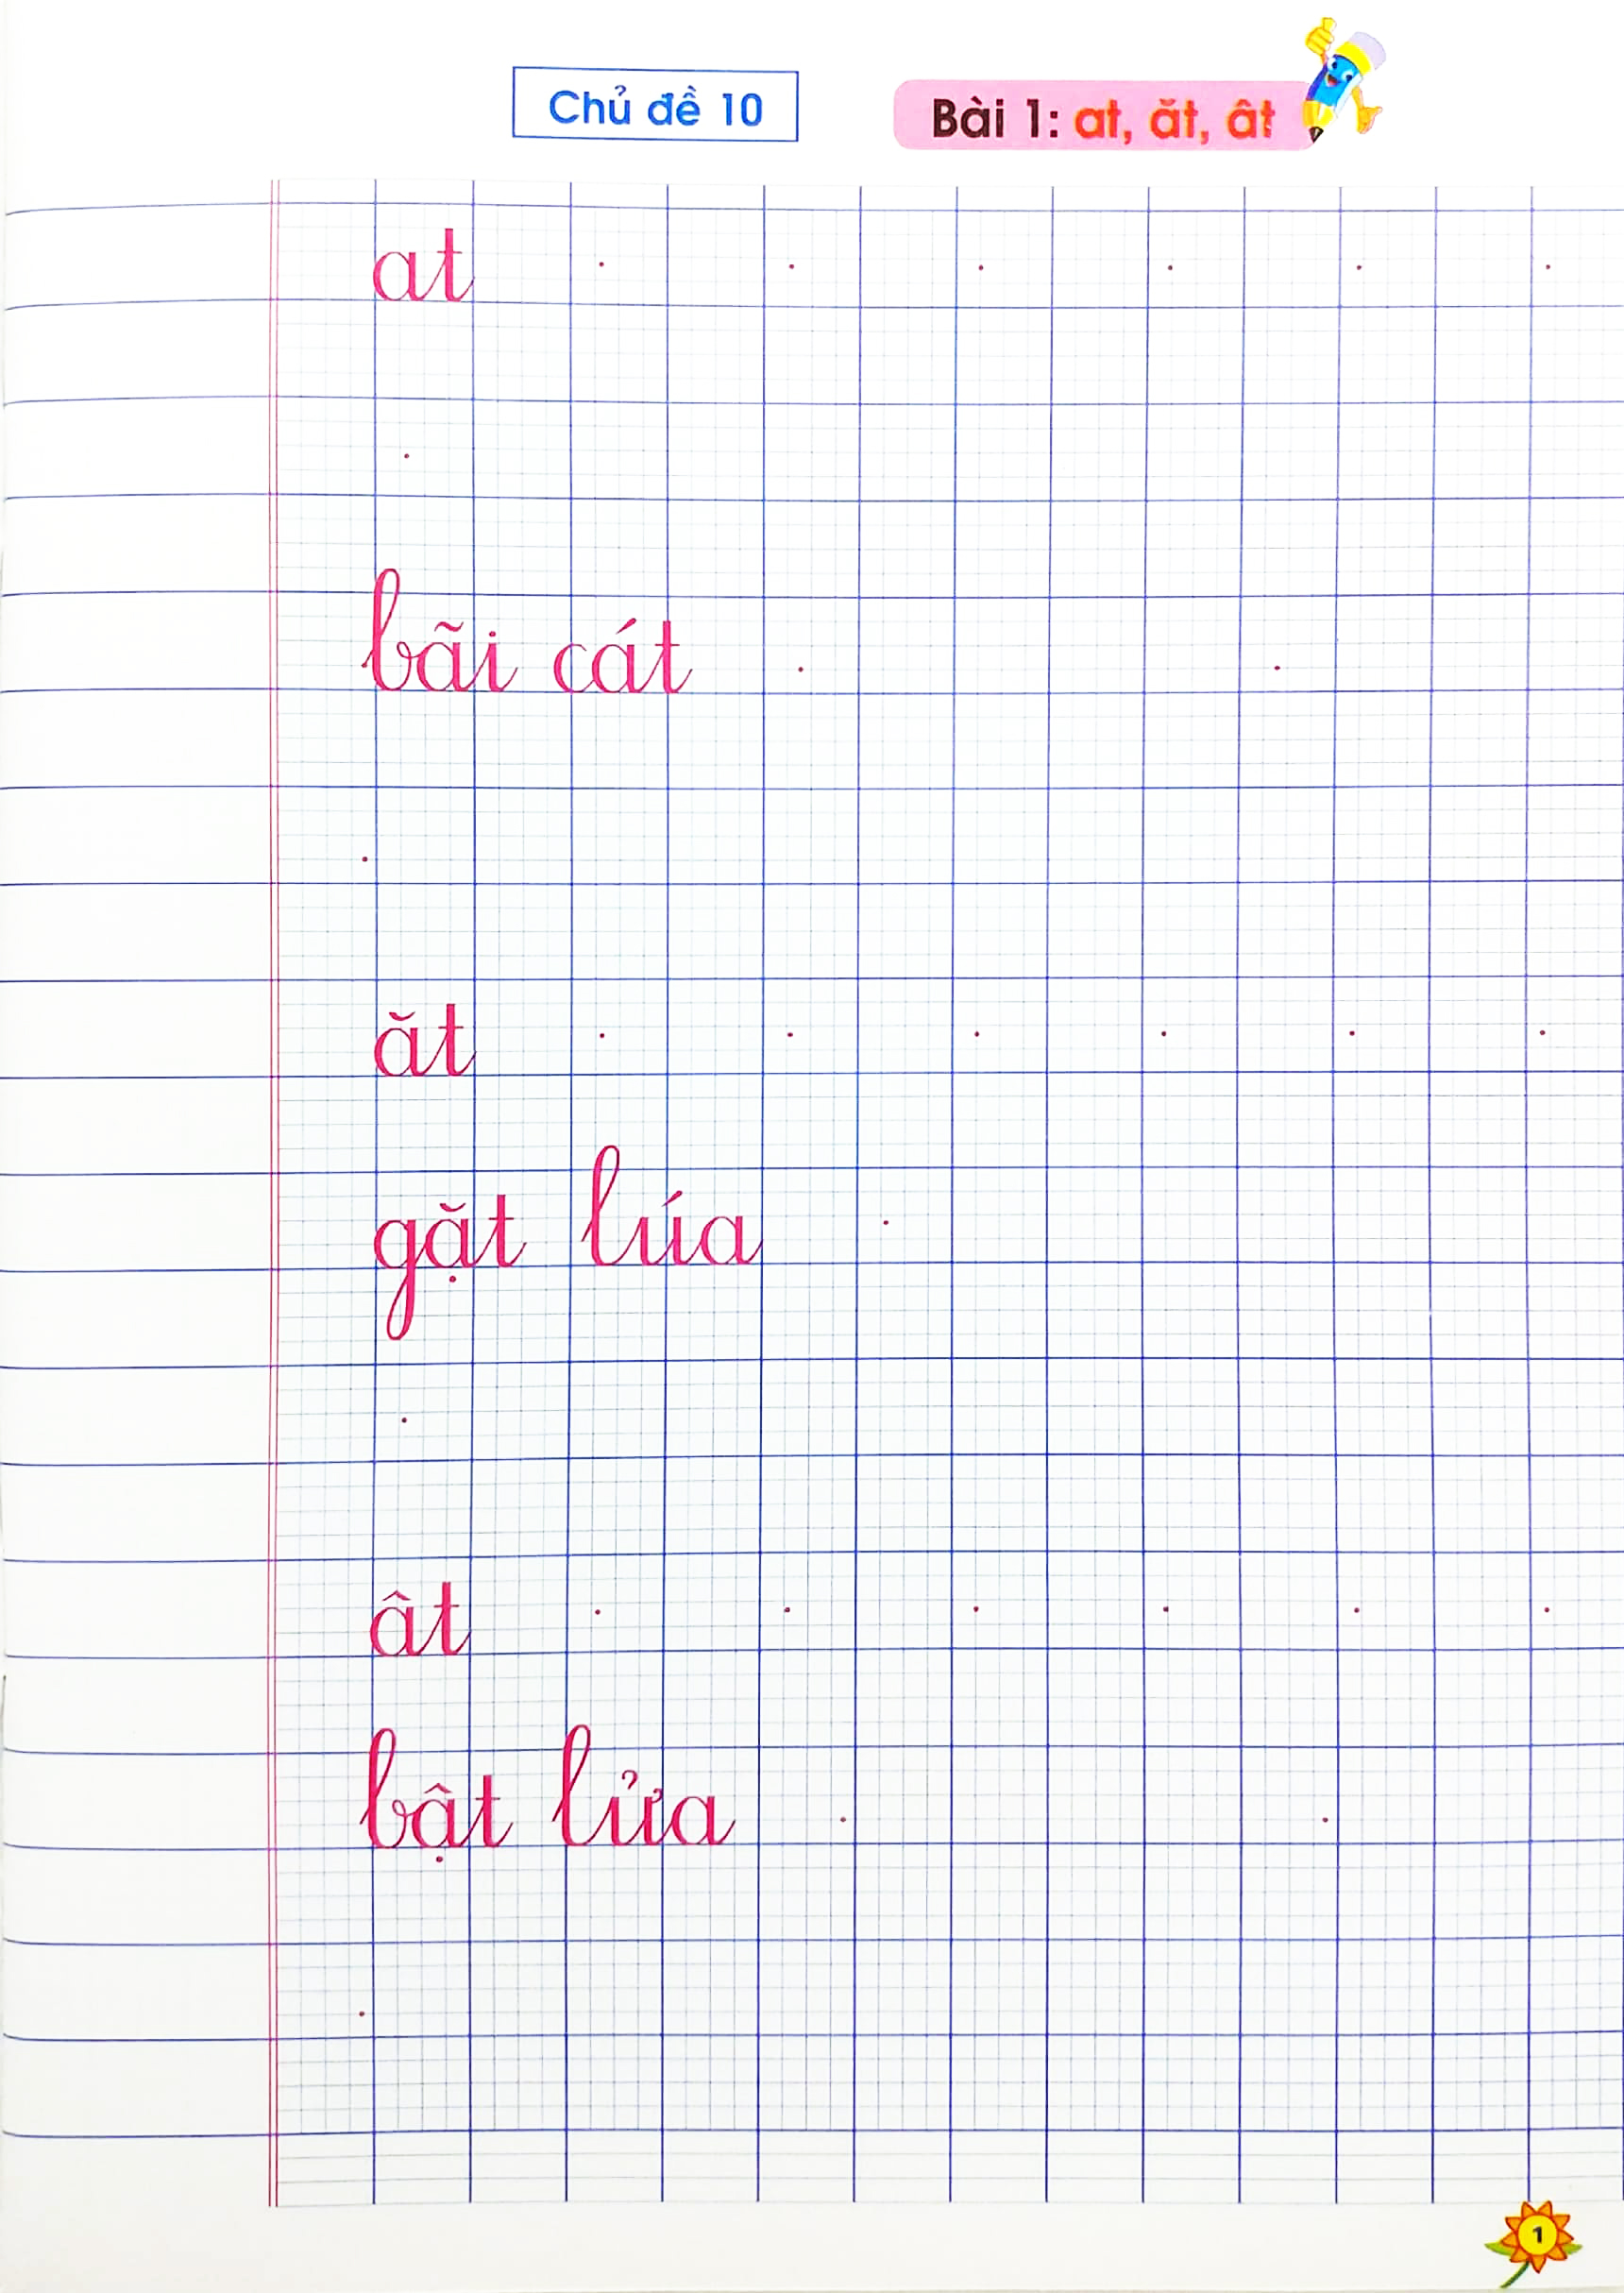 Chủ đề 10
Bài 1: at, ăt, ât
at
bãi cát
ăt
gặt lúa
ât
bật lửa
1